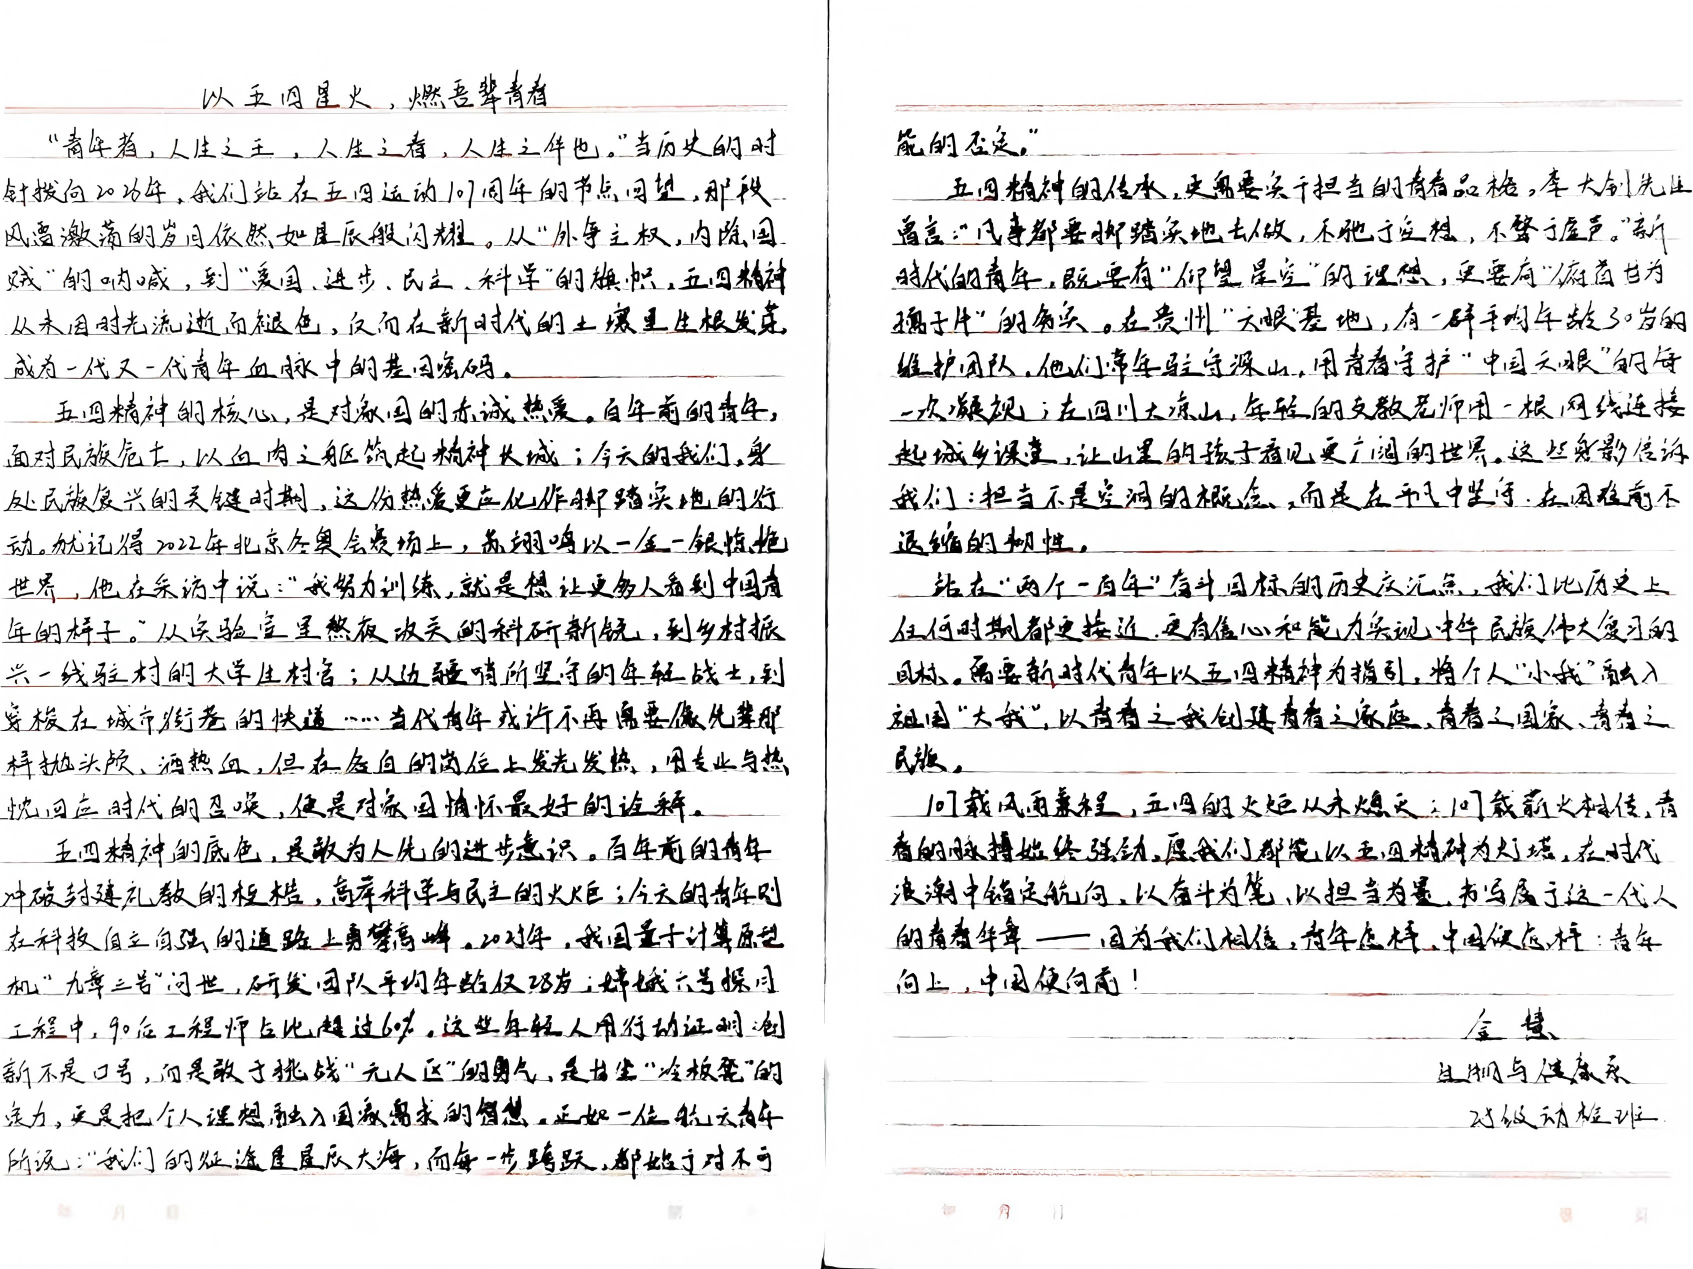 以五四星火，燃吾辈青春
“青年者，人生之王，人生之春，人生之华也。”当历史的时
针拨向2026年，我们站在五四运动107周年的节点回望，那段
风雷激荡的岁月依然如星辰般闪耀。从“外争主权，内除国
贼”的呐喊，到“爱国、进步、民主、科学”的旗帜，五四精神
从未因时光流逝而褪色，反而在新时代的土壤里生根发芽，
成为一代又一代青年血脉中的基因密码。
五四精神的核心，是对家国的赤诚热爱。百年前的青年，
面对民族危亡，以血肉之躯筑起精神长城；今天的我们，身
处民族复兴的关键时期，这份热爱更应化作脚踏实地的行
动。犹记得2022年北京冬奥会赛场上，苏翊鸣以一金一银惊艳
世界，他在采访中说：“我努力训练，就是想让更多人看到中国青
年的样子。”从实验室里熬夜攻关的科研新锐，到乡村振
兴一线驻村的大学生村官；从边疆哨所坚守的年轻战士，到
穿梭在城市街巷的快递……当代青年或许不再需要像先辈那
样抛头颅、洒热血，但在各自的岗位上发光发热，用专业与热
忱回应时代的召唤，便是对家国情怀最好的诠释。
五四精神的底色，是敢为人先的进步意识。百年前的青年
冲破封建礼教的桎梏，高举科学与民主的火炬；今天的青年则
在科技自立自强的道路上勇攀高峰。2025年，我国量子计算原型
机“九章三号”问世，研发团队平均年龄仅28岁；嫦娥六号探月
工程中，90后工程师占比超过60%。这些年轻人用行动证明：创
新不是口号，而是敢于挑战“无人区”的勇气，是甘坐“冷板凳”的
定力，更是把个人理想融入国家需求的智慧。正如一位航天青年
所说：“我们的征途是星辰大海，而每一步跨跃，都始于对不可
能的否定。”
五四精神的传承，更需要实干担当的青春品格。李大钊先生
曾言：“凡事都要脚踏实地去做，不驰于空想，不骛于虚声。”新
时代的青年，既要有“仰望星空”的理想，更要有“俯首甘为
孺子牛”的务实。在贵州“天眼”基地，有一群平均年龄30岁的
维护团队，他们常年驻守深山，用青春守护“中国天眼”的每
一次凝视；在四川大凉山，年轻的支教老师用一根网线连接
起城乡课堂，让山里的孩子看见更广阔的世界。这些身影告诉
我们：担当不是空洞的概念，而是在平凡中坚守、在困难前不
退缩的韧性。
站在“两个一百年”奋斗目标的历史交汇点，我们比历史上
任何时期都更接近、更有信心和能力实现中华民族伟大复兴的
目标。需要新时代青年以五四精神为指引，将个人“小我”融入
祖国“大我”，以青春之我创建青春之家庭、青春之国家、青春之
民族。
107载风雨兼程，五四的火炬从未熄灭；107载薪火相传，青
春的脉搏始终强劲。愿我们都能以五四精神为灯塔，在时代
浪潮中锚定航向，以奋斗为笔、以担当为墨，书写属于这一代人
的青春华章——因为我们相信，青年怎样，中国便怎样；青年
向上，中国便向前！
金慧
生物与健康系
25级动检班
年 月 日
第 页
年 月 日
第 页